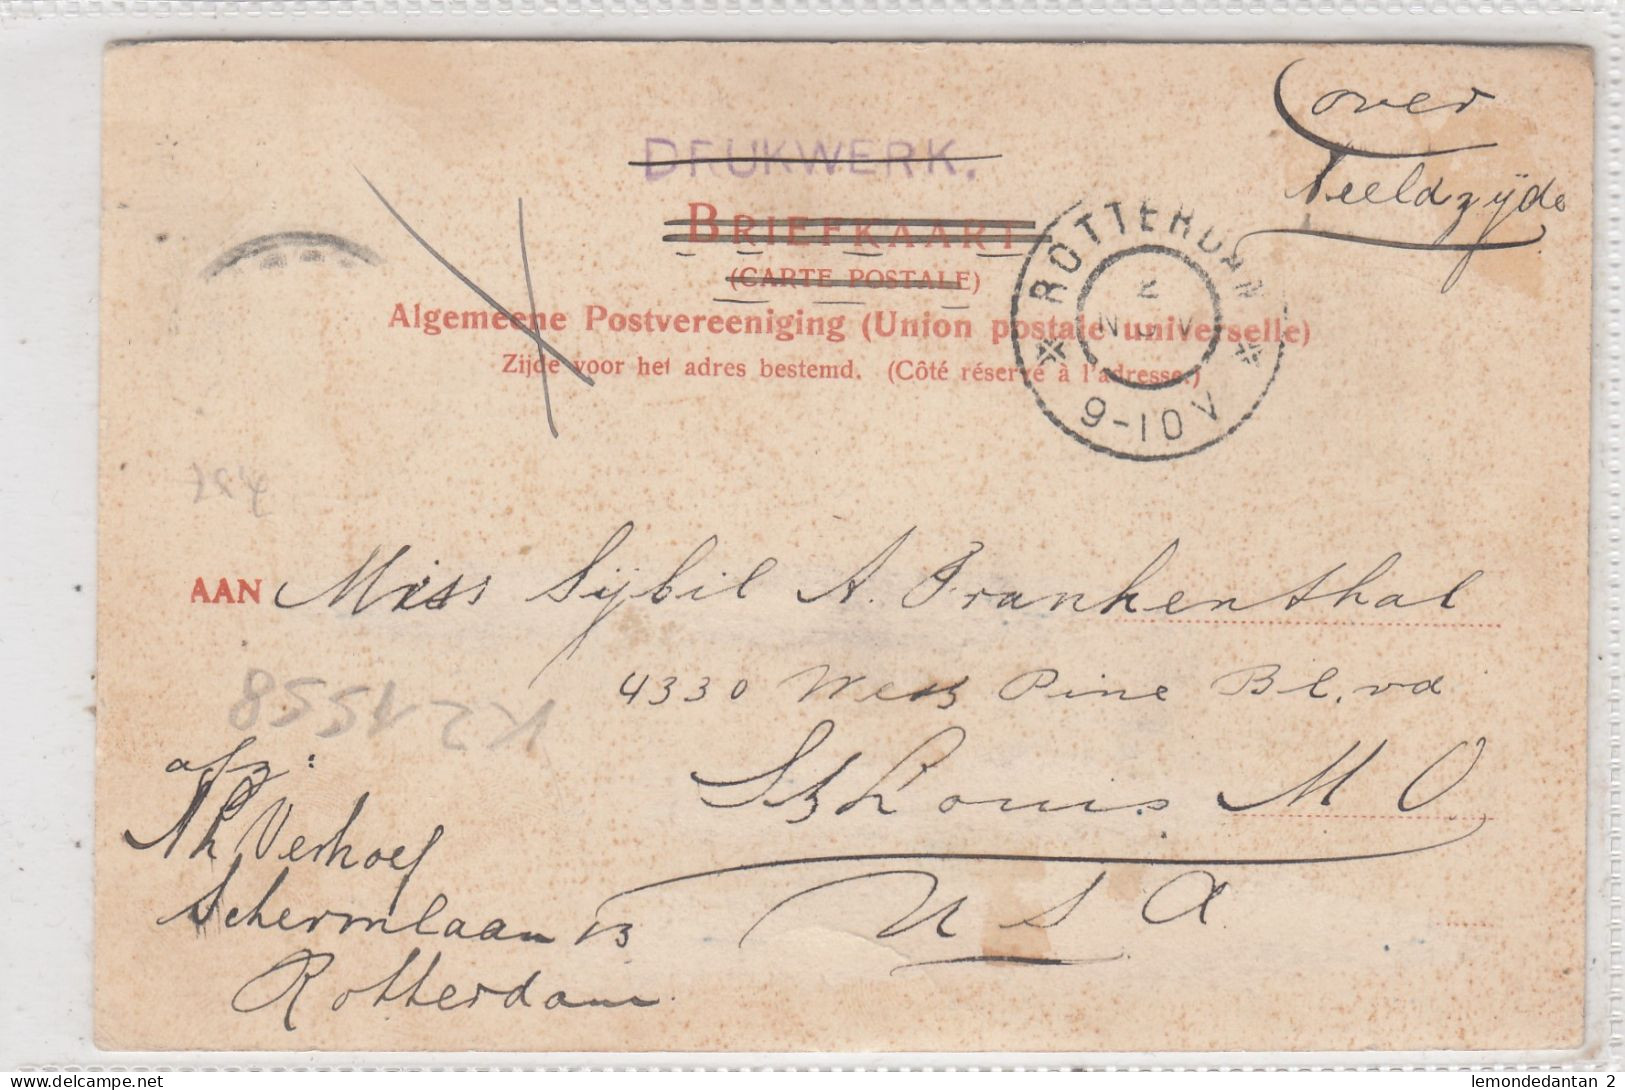 over
Beeldzyde
DRUKWERK.
BRIEFKAART
(CARTE POSTALE)
Algemeene Postvereeniging (Union postale universelle)
Zijde voor het adres bestemd. (Côté réservé à l'adresse.)
ROTTERDAM
2
NOV
9-10V
AAN Miss Sybil A. Frankenthal
4330 West Pine Bl.vd
St Louis. M O
U S A
KZ 1558
afz:
Th Verhoef
Schermlaan 13
Rotterdam.
lemondedantan 2